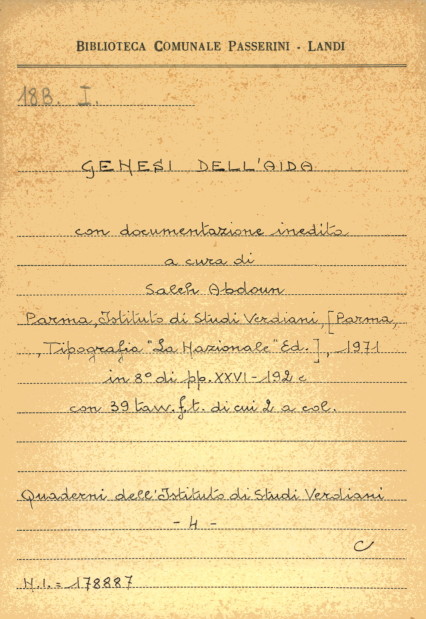 BIBLIOTECA COMUNALE PASSERINI - LANDI
18B. I.
GENESI DELL'AIDA
con documentazione inedita
a cura di
Saleh Abdoun
Parma, Istituto di Studi Verdiani, [Parma,
, Tipografia "La Nazionale" Ed.], 1971
in 8° di pp. XXVI-192 c
con 39 tav. f.t. di cui 2 a col.
Quaderni dell'Istituto di Studi Verdiani
- 4 -
C
N.I. = 178887